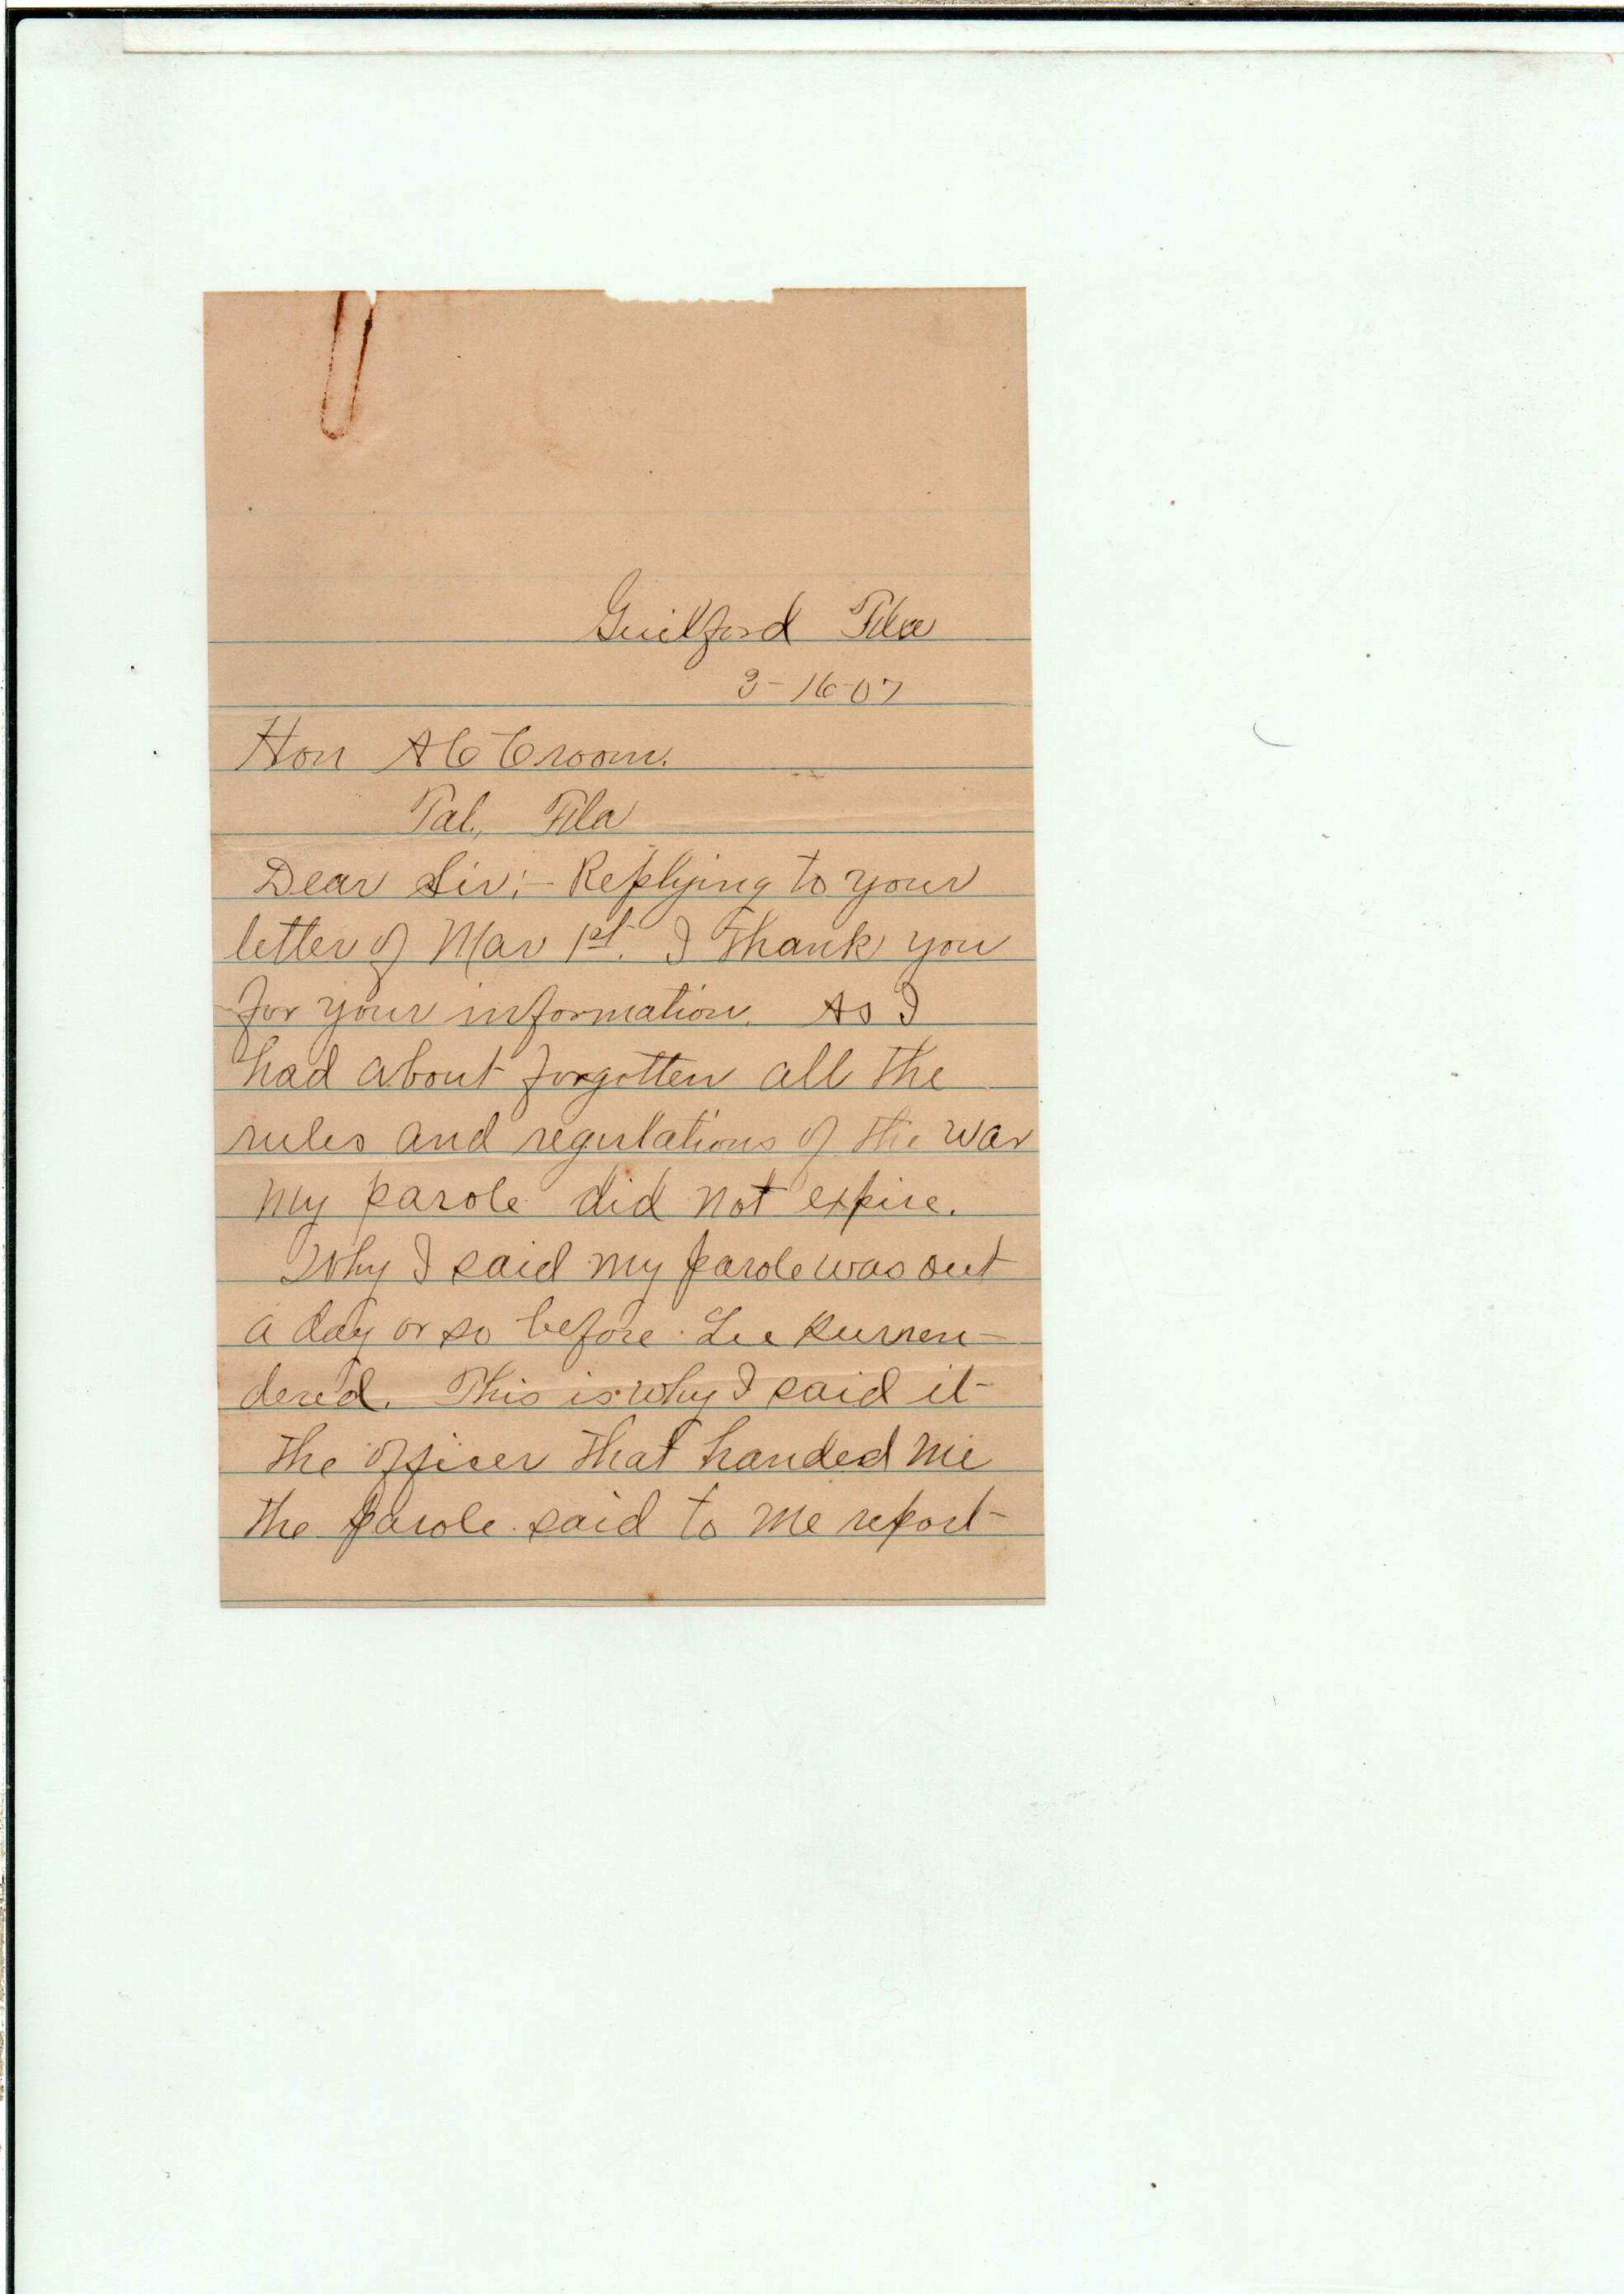 Guilford Fla
3-16-07
Hon A C Croom.
Tal. Fla
Dear Sir:- Replying to your
letter of Mar 1st. I thank you
for your information. As I
had about forgotten all the
rules and regulations of the war
my parole did not expire.
Why I said my parole was out
a day or so before Lee surren-
dered. This is why I said it
the officer that handed me
the parole said to me report-